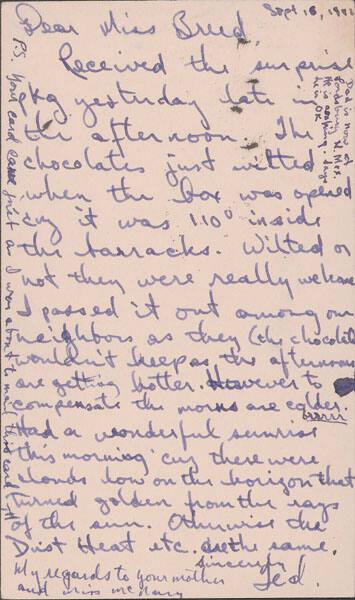 Sept 16, 1942
Dear Miss Breed,
Received the surprise
pkg yesterday late in
the afternoon. The
chocolates just wilted
when the box was opened
cuz it was 110° inside
the barracks. Wilted or
not they were really welcome
I passed it out among our
neighbors as they (the chocolates
wouldn't keep as the afternoons
are getting hotter. However to
compensate the morns are colder.
brrrrr
Had a wonderful sunrise
this morning cuz there were
clouds low on the horizon that
turned golden from the rays
of the sun. Otherwise the
Dust Heat etc. are the same.
sincerely
Ted.
My regards to your mother
and miss McNary
P.S. Your card came just as I was about to mail this card
Dad is now at
Lordsburg N. Mex.
He is
He is OK